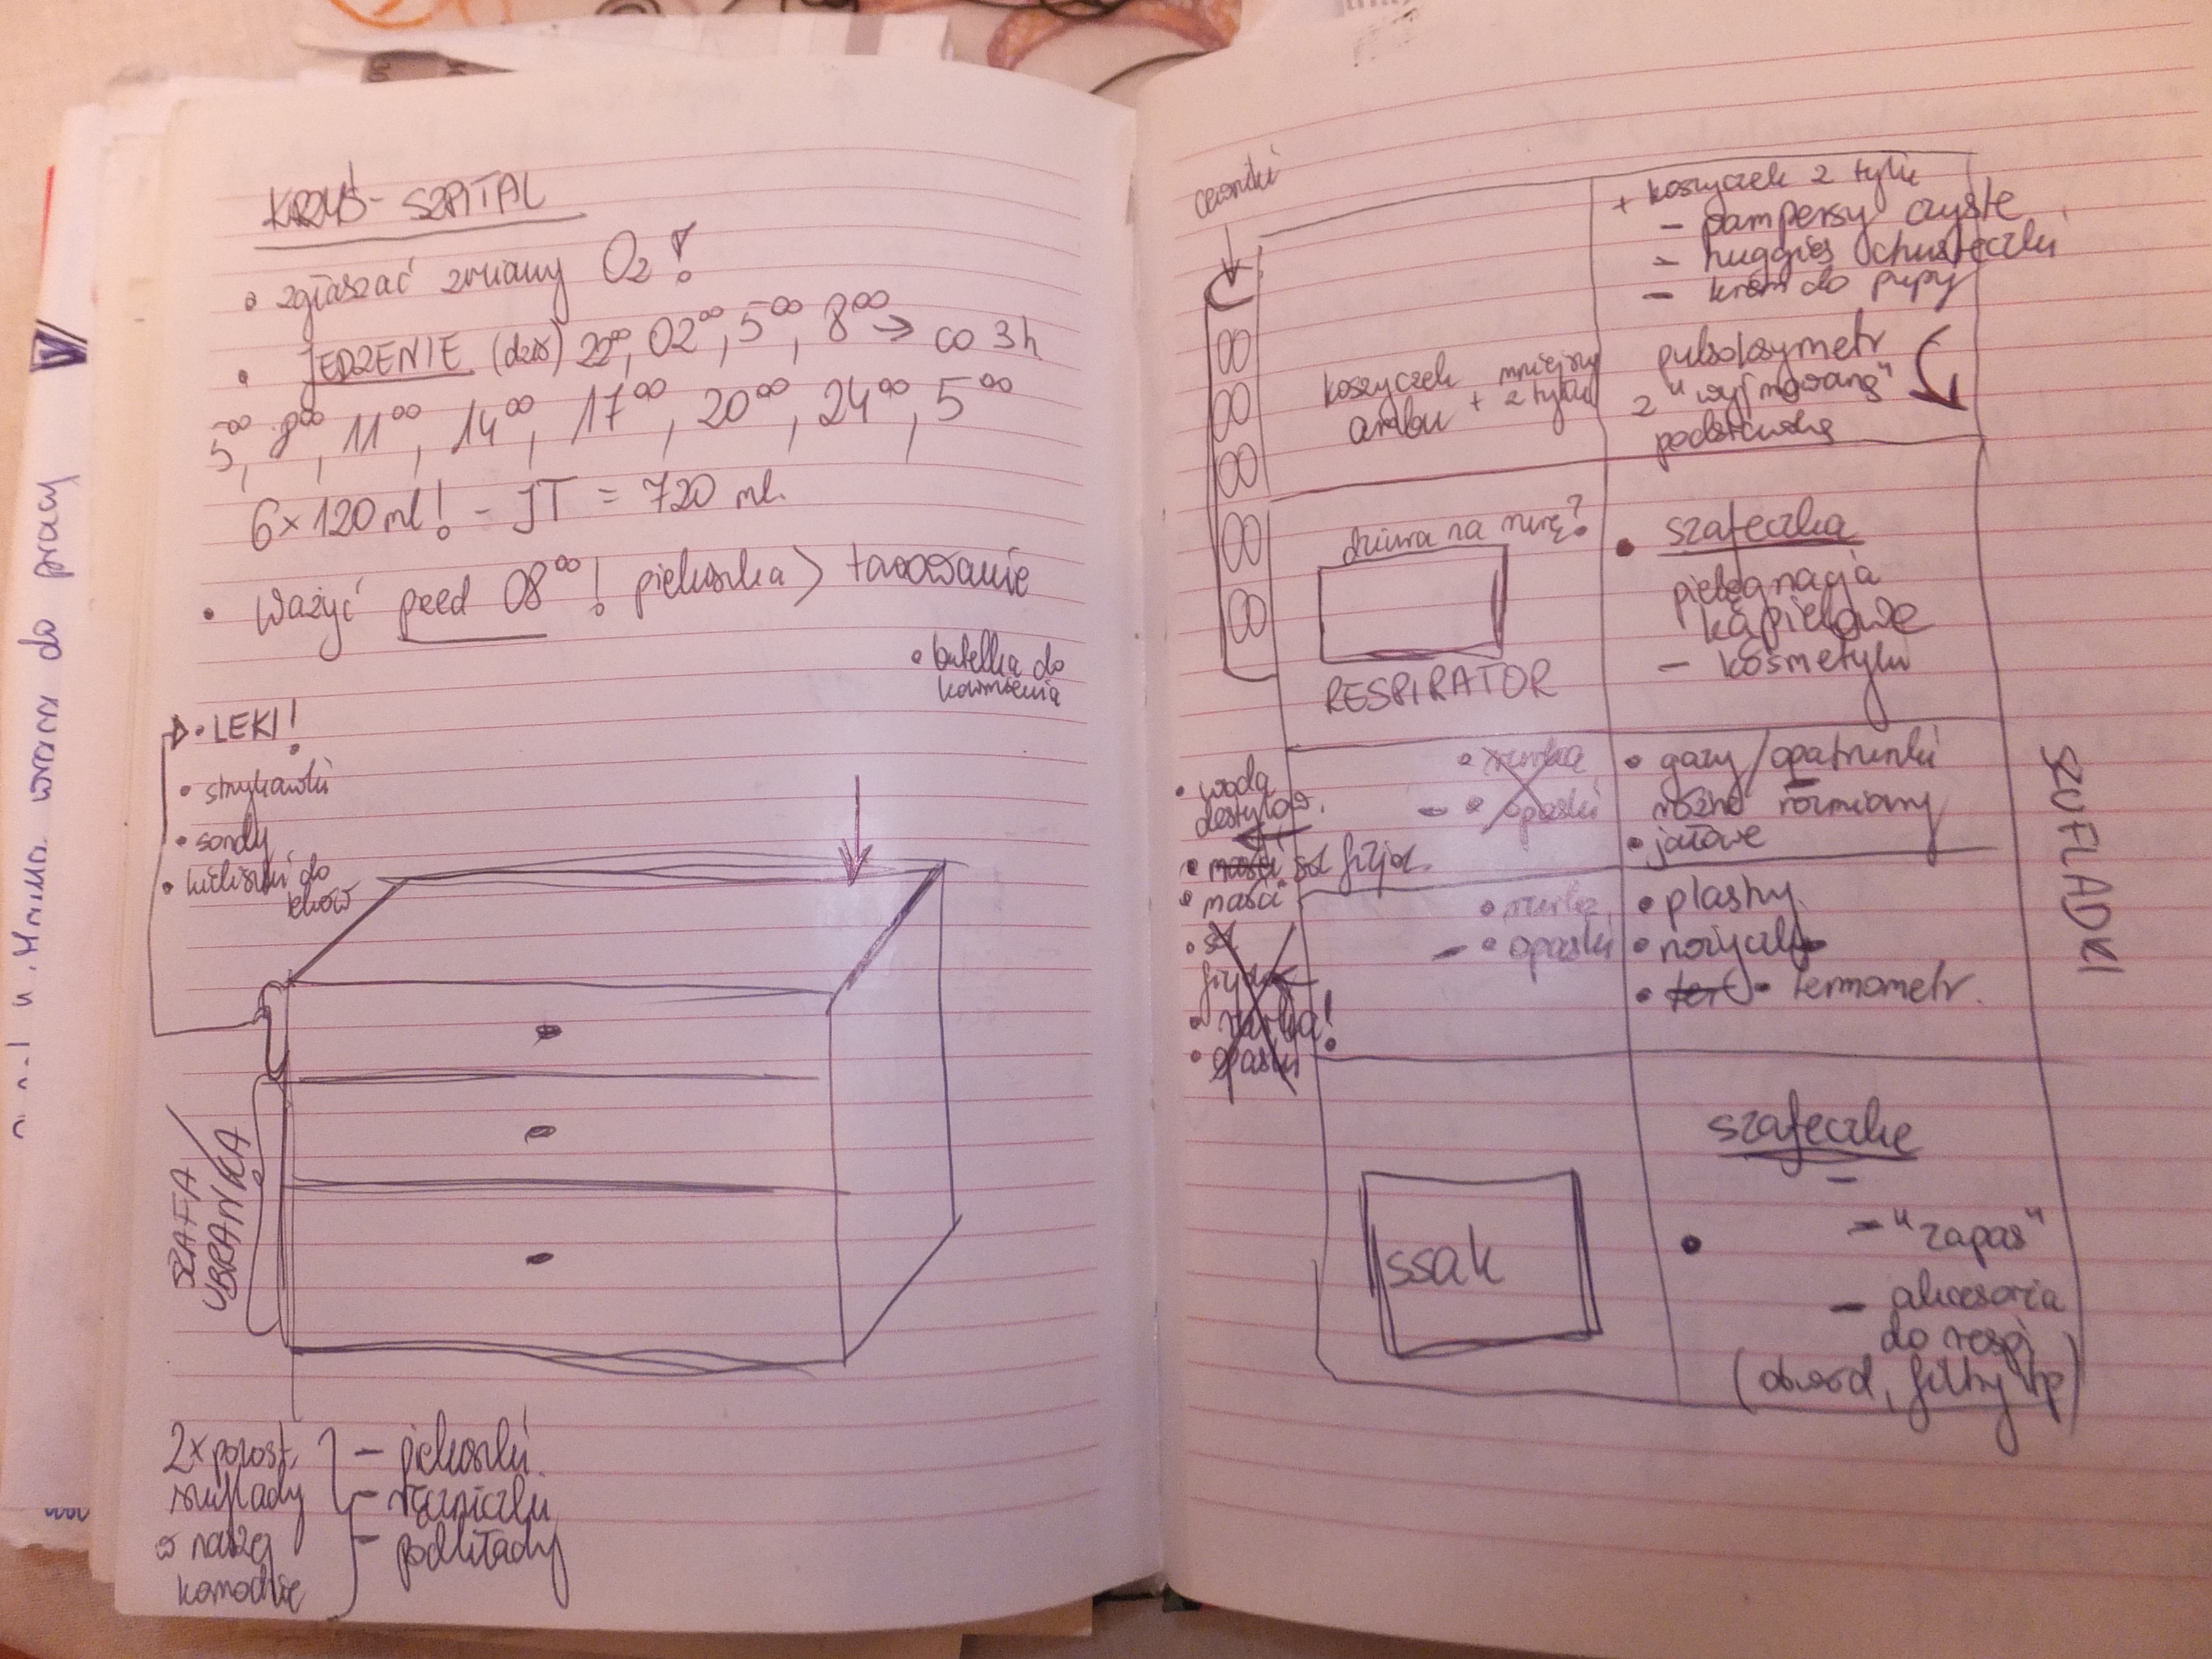 KRZYŚ - SZPITAL
• zgłaszać zmiany O2!
• JEDZENIE (dziś) 22⁰⁰, 02⁰⁰, 5⁰⁰, 8⁰⁰ → co 3h
5⁰⁰, 8⁰⁰, 11⁰⁰, 14⁰⁰, 17⁰⁰, 20⁰⁰, 24⁰⁰, 5⁰⁰
6 x 120 ml! - JT = 720 ml.
• ważyć przed 08⁰⁰! pieluszka > tarowanie
• butelka do
karmienia
• LEKI!
• strzykawki
• sondy
• kieliszki do
leków
SZAFA/
UBRANKA
2x pozost.
szuflady
w naszej
komodzie
- pieluszki
- ręczniczki
- podkłady
do pracy
cewniki
koszyczek
ambu + mniejszy
z tyłu
+ koszyczek z tyłu
- pampersy czyste
- huggies chusteczki
- krem do pupy
pulsoksymetr
z "wyjmowaną"
podstawką
dziura na rurę?
RESPIRATOR
• szafeczka
pielęgnacja
kąpielowe
- kosmetyki
• woda
destylow.
• maści sól fizjol.
• maści
• sól
fizjol
• rurka!
• opaski
• rurka
- • opaski
• gazy/opatrunki
różne rozmiary
• jałowe
• rurka
- • opaski
• plastry
• nożyczki
• term • termometr.
SZUFLADKI
ssak
szafeczkę
- "zapas"
- akcesoria
do respi
(obwód, filtry itp)